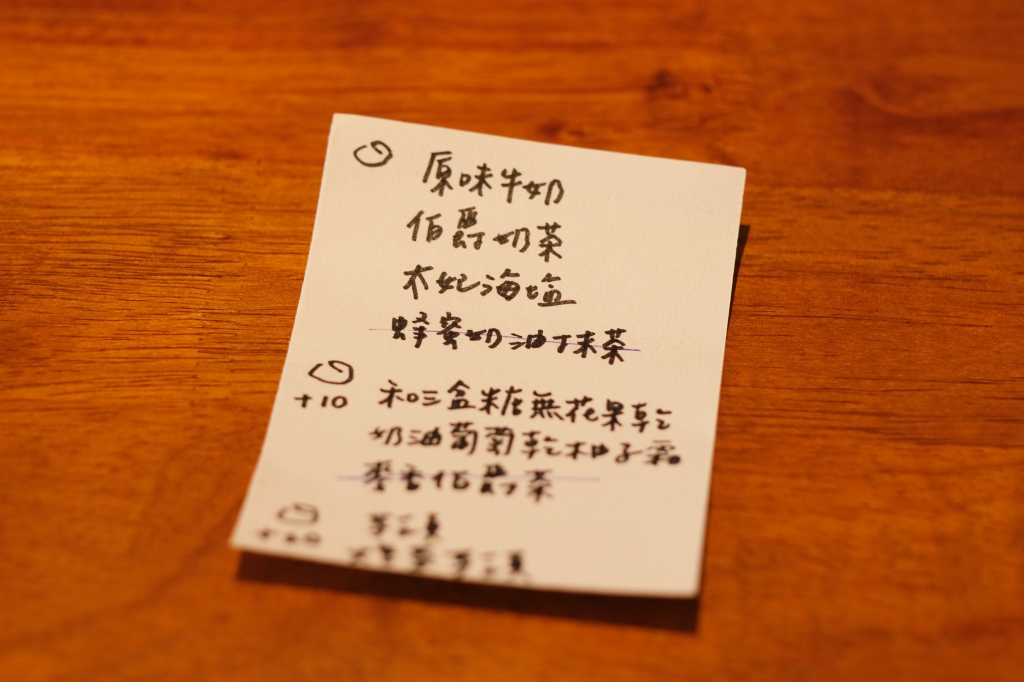 原味牛奶
伯爵奶茶
太妃海塩
蜂蜜奶油抹茶
+10 和三盒糖無花果乾
奶油葡萄乾柚子霜
麥香伯爵茶